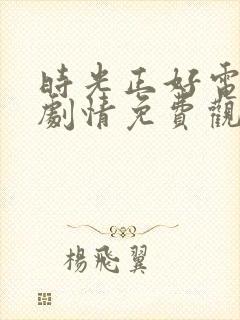 時光正好電
劇情免費觀
楊飛翼